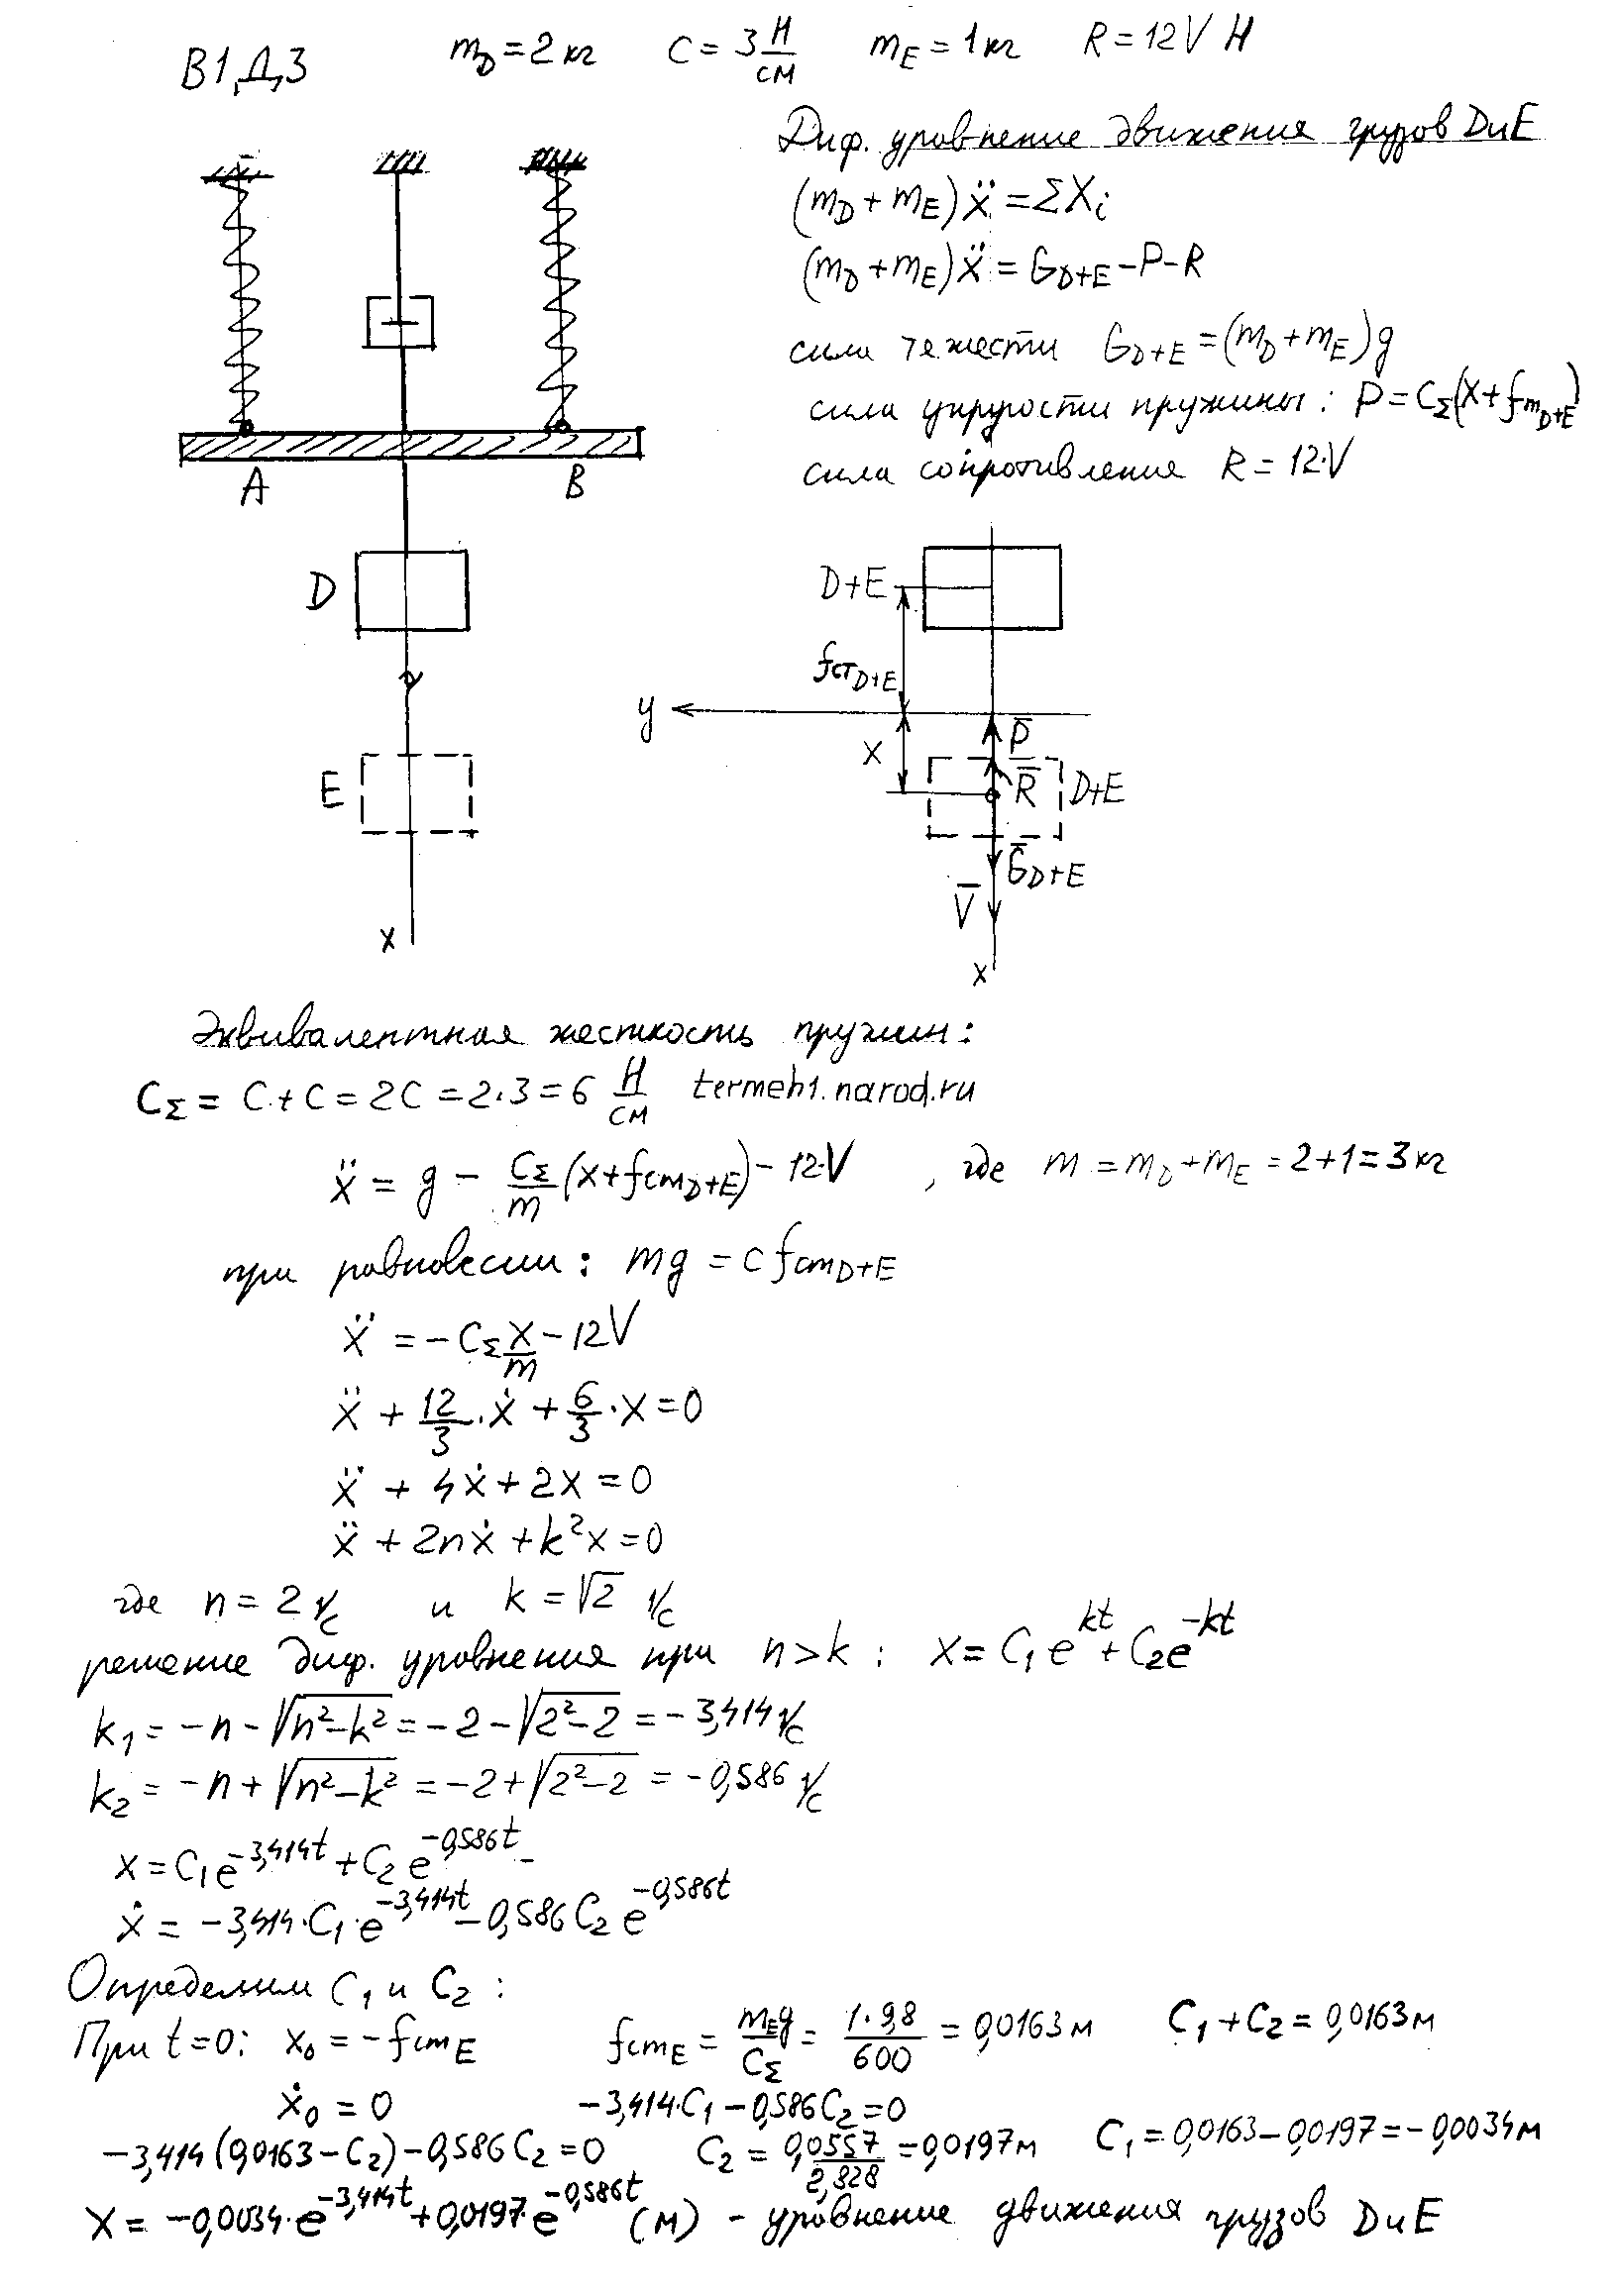 В1,Д,3 m_D = 2 кг C = 3 Н/см m_E = 1 кг R = 12V Н
Диф. уровнение движения грузов D и E
(m_D + m_E)ẍ = ΣX_i
(m_D + m_E)ẍ = G_{D+E} - P - R
сила тежести G_{D+E} = (m_D + m_E)g
сила упругости пружины: P = C_Σ(x + f_{mD+E})
сила сопротивления R = 12·V
A
B
D
E
x
D+E
f_{ст D+E}
y
x
P̄
R̄
D+E
Ḡ_{D+E}
V̄
x
Эквивалентная жесткость пружин:
C_Σ = C + C = 2C = 2·3 = 6 Н/см termeh1.narod.ru
ẍ = g - C_Σ/m (x + f_{cm D+E}) - 12·V , где m = m_D + m_E = 2+1 = 3 кг
при равновесии: mg = c f_{cm D+E}
ẍ = -C_Σ x/m - 12V
ẍ + 12/3·ẋ + 6/3·x = 0
ẍ + 4ẋ + 2x = 0
ẍ + 2nẋ + k²x = 0
где n = 2 1/с и k = √2 1/с
решение диф. уровнения при n > k : x = C₁e^{kt} + C₂e^{-kt}
k₁ = -n - √(n²-k²) = -2 - √(2²-2) = -3,414 1/с
k₂ = -n + √(n²-k²) = -2 + √(2²-2) = -0,586 1/с
x = C₁e^{-3,414t} + C₂e^{-0,586t}
ẋ = -3,414·C₁·e^{-3,414t} - 0,586C₂e^{-0,586t}
Определим C₁ и C₂ :
При t=0: x₀ = -f_{cm E} f_{cm E} = m_E g/C_Σ = 1·9,8/600 = 0,0163 м C₁ + C₂ = 0,0163 м
ẋ₀ = 0 -3,414·C₁ - 0,586C₂ = 0
-3,414(0,0163 - C₂) - 0,586C₂ = 0 C₂ = 0,0557/2,828 = 0,0197 м C₁ = 0,0163 - 0,0197 = -0,0034 м
x = -0,0034·e^{-3,414t} + 0,0197·e^{-0,586t} (м) - уровнение движения грузов D и E